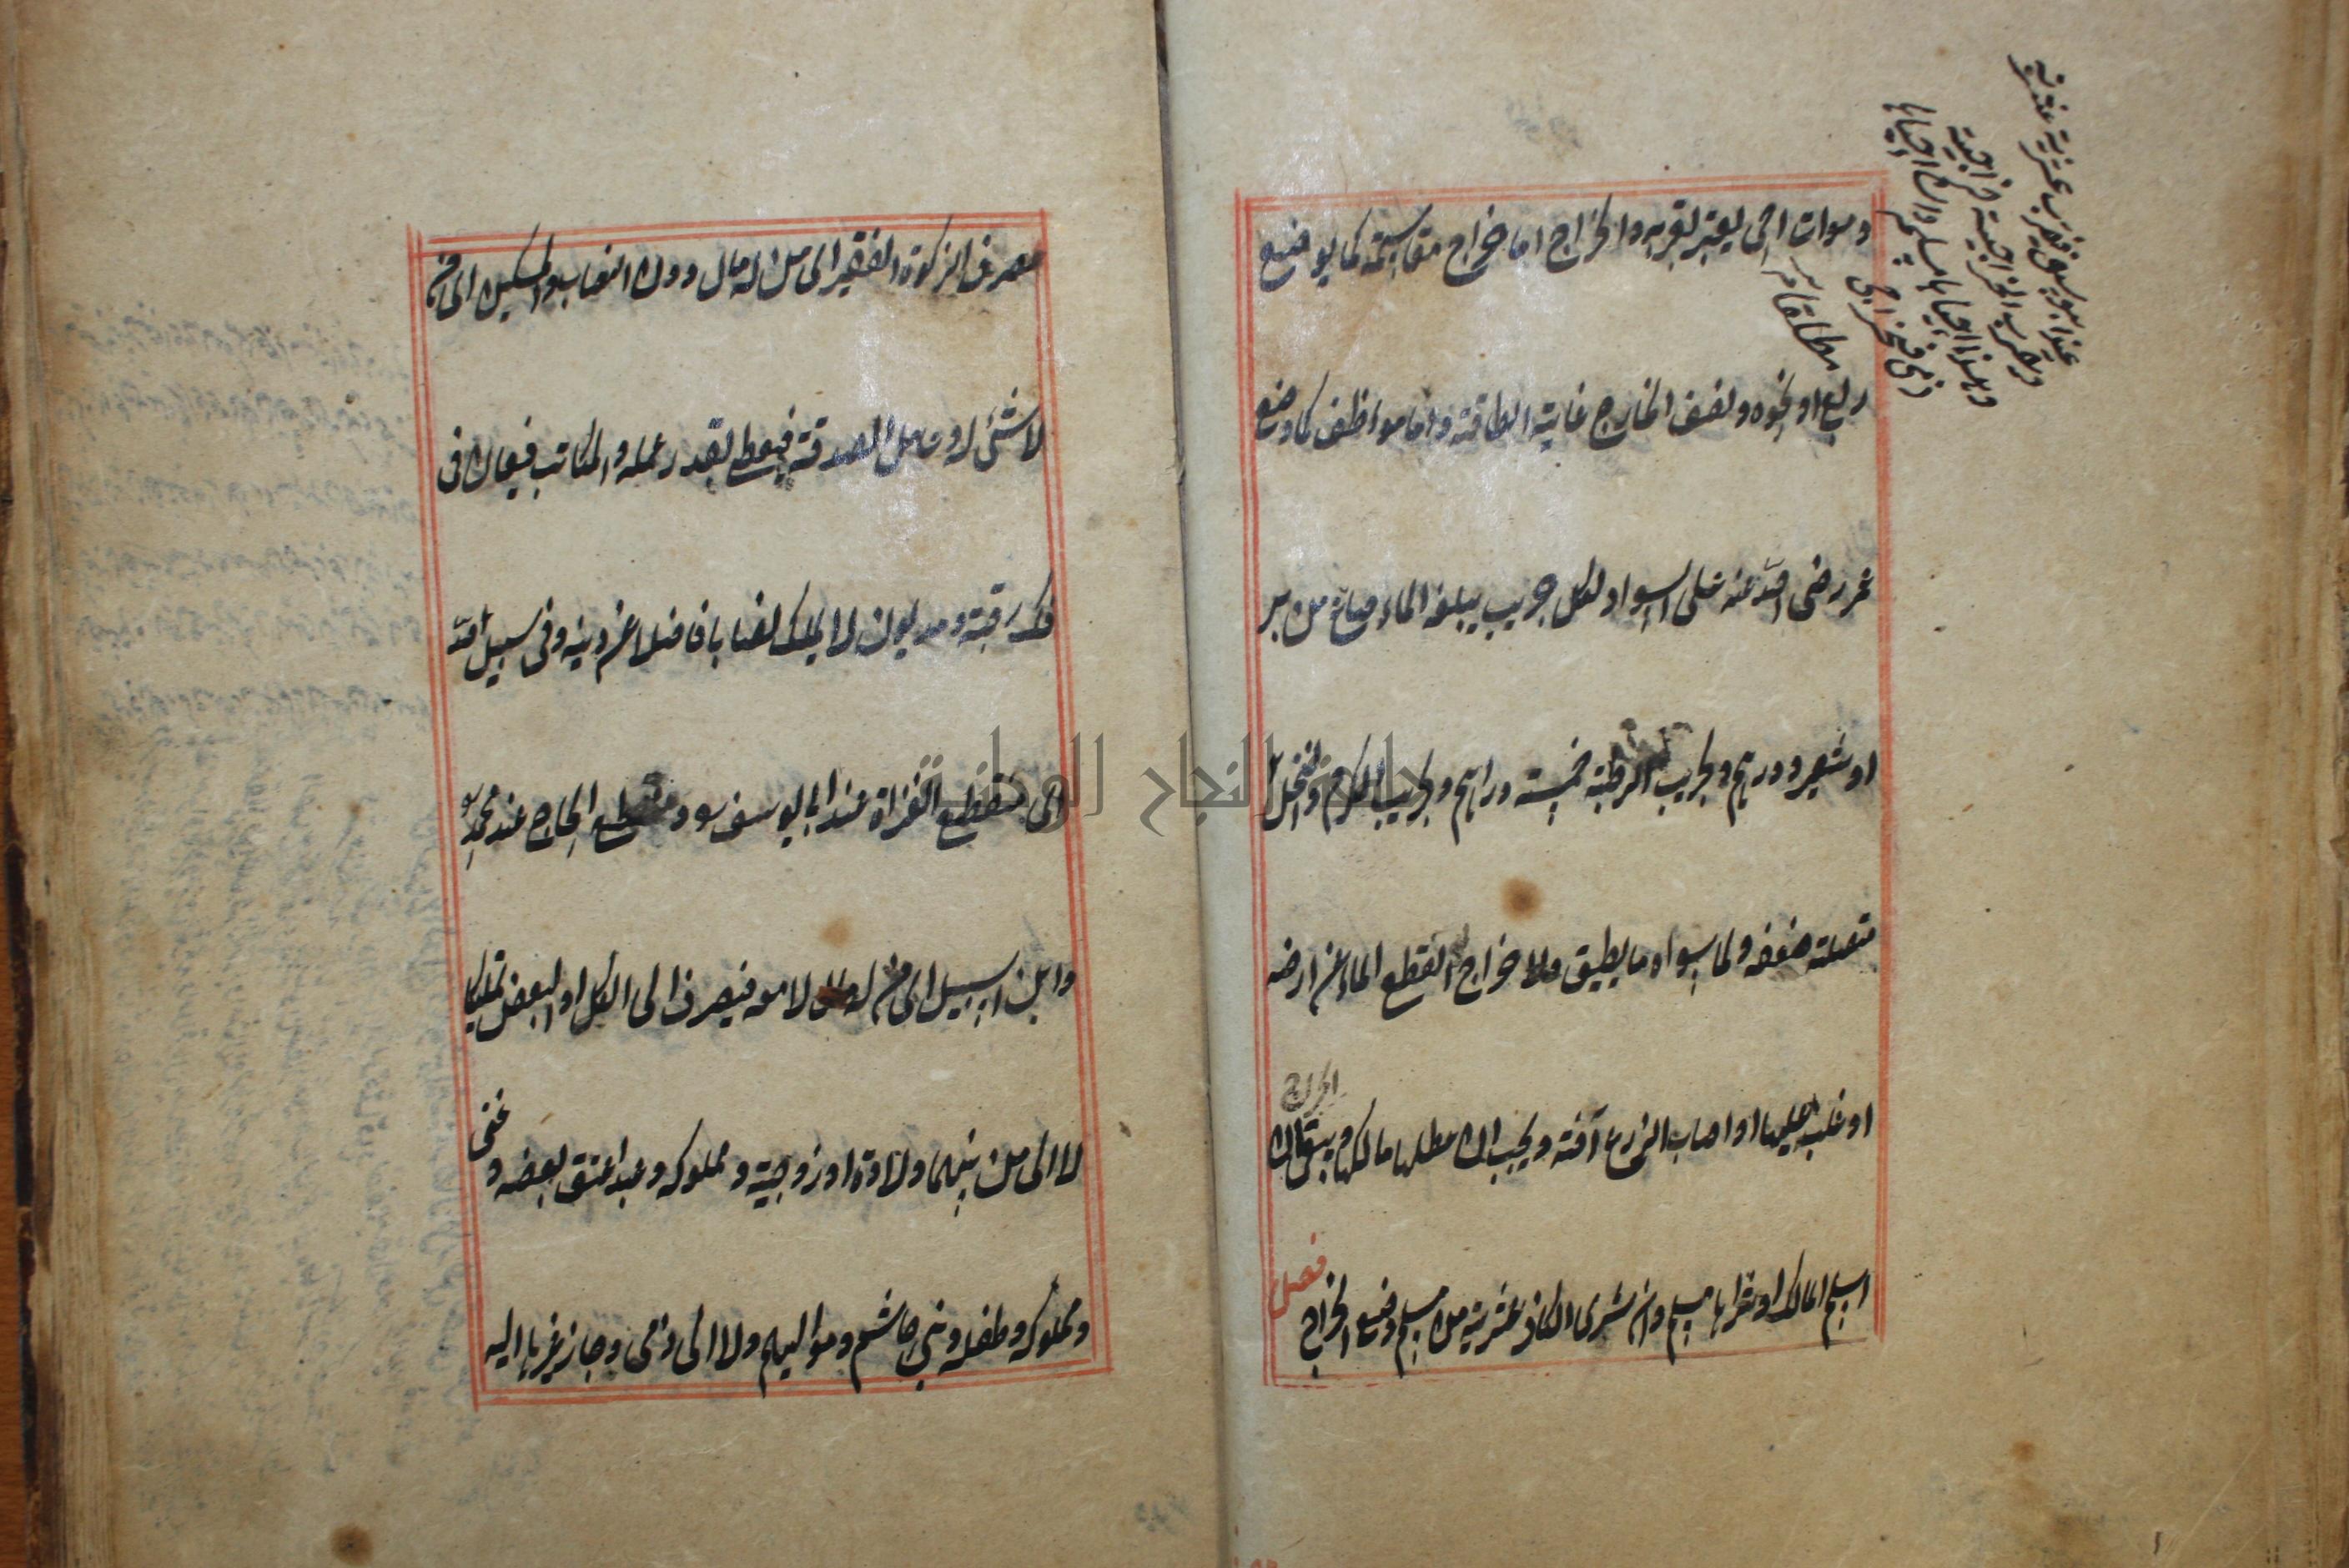 وموات احيى يعتبر بقربه والخراج اما خراج مقاسمة كما يوضع
ربع او نحوه ونصف الخارج غاية الطاقة واما موظف كما وضع
عمر رضى الله عنه على السواد لكل جريب يبلغه الماء صاع من بر
او شعير ودرهم ولجريب الرطبة خمسة دراهم ولجريب الكرم والنخل
متصلة ضعفه ولما سواه ما يطيق ولا خراج لو انقطع الماء عن ارضه
او غلب عليها او اصاب الزرع آفة ويجب ان عطلها مالكها ويبقى ان
الخراج
اسلم المالك او شراها مسلم وان شرى الكافر عشرية من مسلم وضع الخراج
فصل
مطلقا
عند ابو يوسف
مصرف الزكوة الفقير اى من له مال دون النصاب والمسكين اى من
لا شئ له وعامل الصدقة فيعطى بقدر عمله والمكاتب فيعان فى
فك رقبته ومديون لا يملك نصابا فاضلا عن دينه وفى سبيل الله
اى منقطع الغزاة عند ابى يوسف ومنقطع الحاج عند محمد
وابن السبيل اى من له مال لا معه فيصرف الى الكل او البعض تمليكا
لا الى من بينهما ولادة او زوجية ومملوكه وعبد اعتق بعضه و
غنى
ومملوكه وطفله وبنى هاشم ومواليهم ولا الى ذمى وجاز غيرها اليه
جامعة النجاح الوطنية